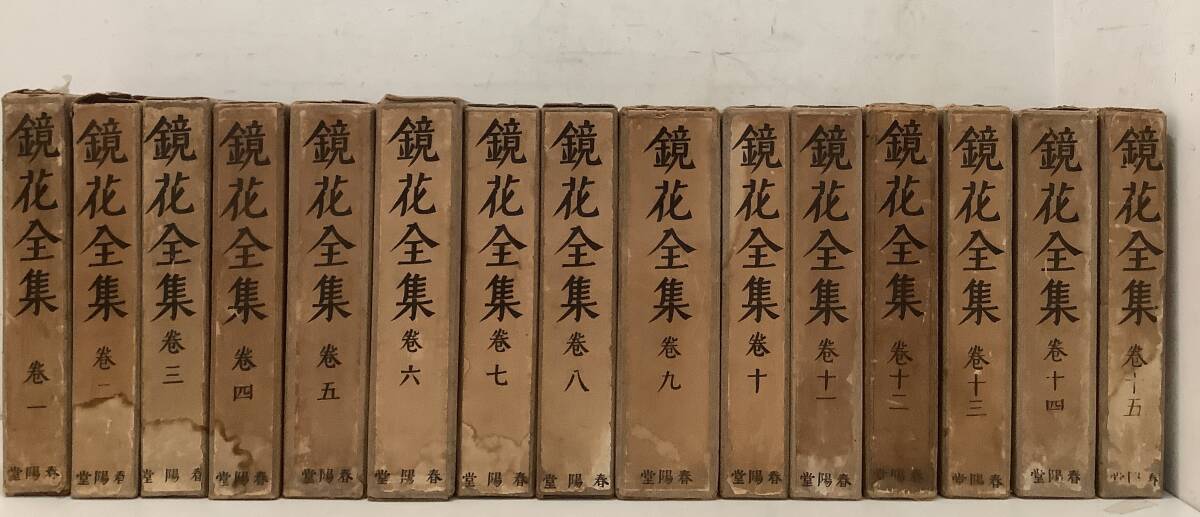 鏡花全集 卷一
春陽堂
鏡花全集 卷二
春陽堂
鏡花全集 卷三
春陽堂
鏡花全集 卷四
春陽堂
鏡花全集 卷五
春陽堂
鏡花全集 卷六
春陽堂
鏡花全集 卷七
春陽堂
鏡花全集 卷八
春陽堂
鏡花全集 卷九
春陽堂
鏡花全集 卷十
春陽堂
鏡花全集 卷十一
春陽堂
鏡花全集 卷十二
春陽堂
鏡花全集 卷十三
春陽堂
鏡花全集 卷十四
春陽堂
鏡花全集 卷十五